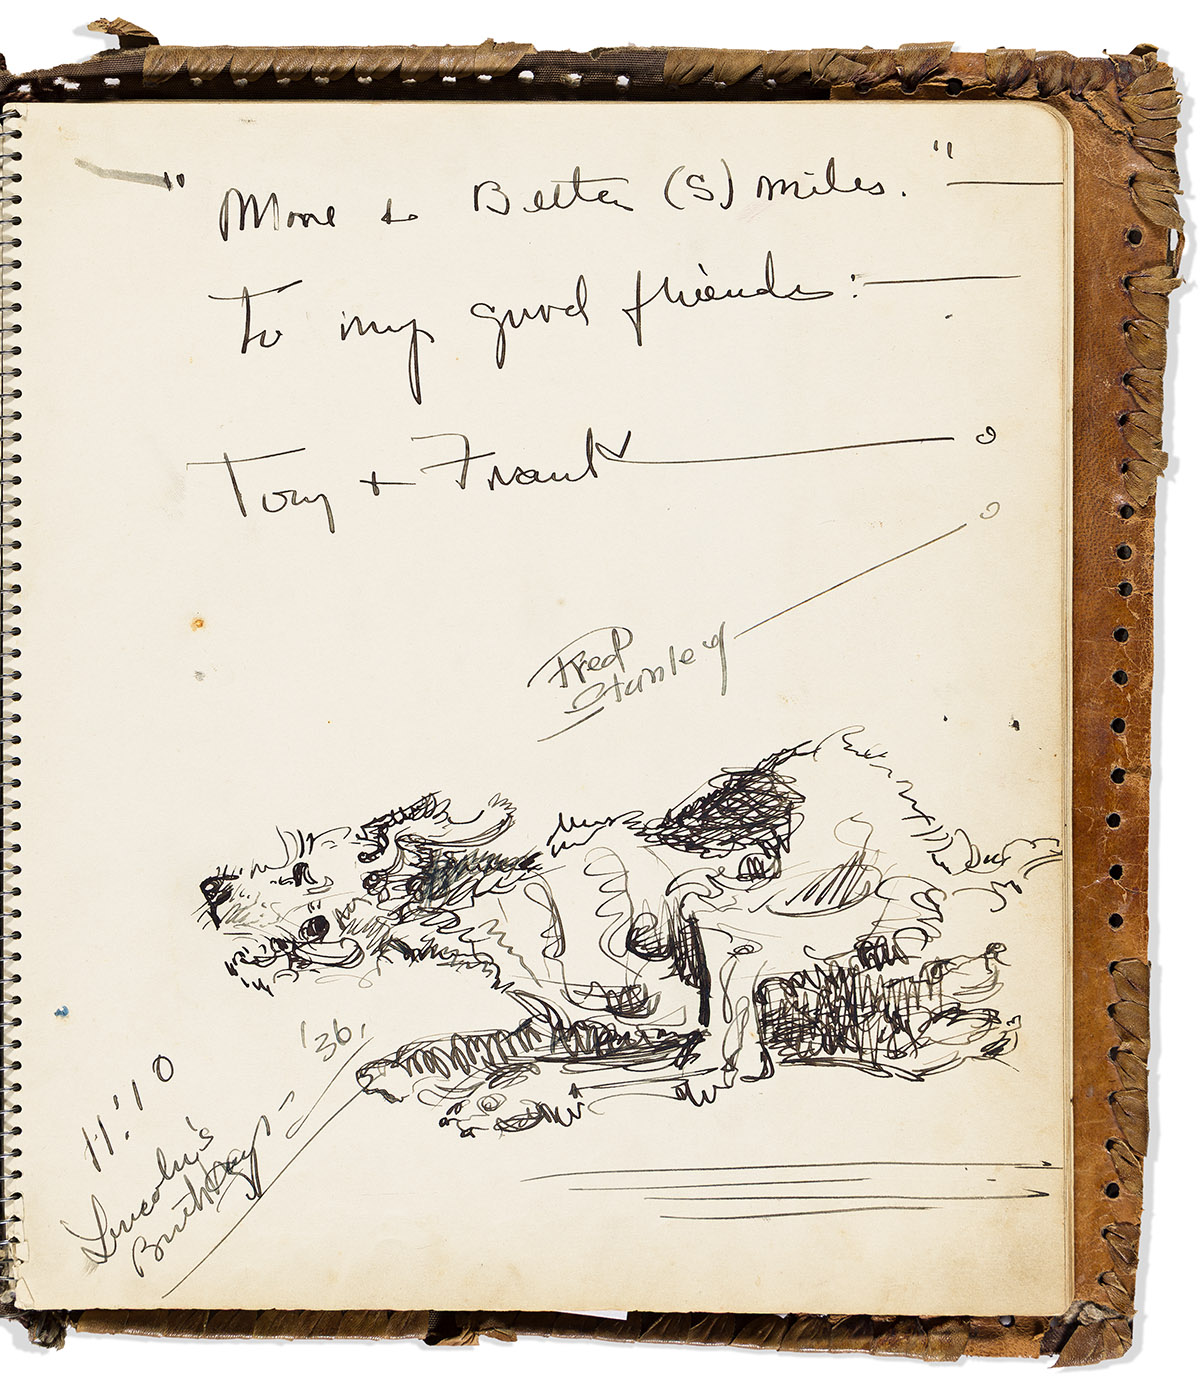 " More & Better (S) miles. "
To my good friends:
Tony + Frank
Fred
Stanley
'36.
11:10
Lincoln's
Birthday =